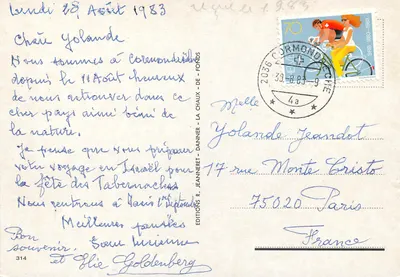 Lundi 29 Août 1983
Chère Yolande
Nous sommes à Cormondrèche
depuis le 11 Août heureux
de nous retrouver dans ce
cher pays aimé béni de
la nature.
Je pense que vous préparez
votre voyage en Israël pour
la fête des Tabernacles
Nous rentrons à Paris 1er Septembre
Meilleures pensées
Bon
souvenir.
Sœur Lucienne
et Elie Goldenberg
314
EDITIONS E. JEANNERET - DANNER - LA CHAUX - DE - FONDS
70
2036 CORMONDRÈCHE
30.8.83-9
4a
Melle
Yolande Jeandot
17 rue Monte Cristo
75020 Paris
France